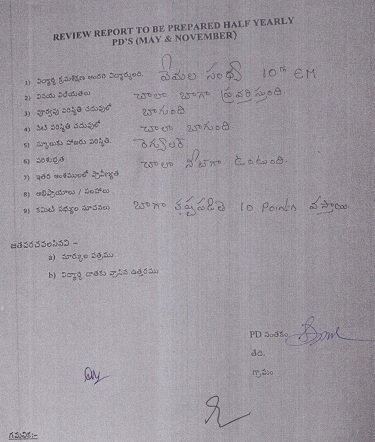 REVIEW REPORT TO BE PREPARED HALF YEARLY
PD'S (MAY & NOVEMBER)
1) విద్యార్థి క్రమశిక్షణ అందరి విద్యార్థులది. వేముల సంధ్య 10th EM
2) వినయ విధేయతలు చాలా బాగా ప్రవర్తిస్తుంది.
3) పూర్వపు పరిస్థితి చదువులో బాగుంది
4) నేటి పరిస్థితి చదువులో చాలా బాగుంది.
5) స్కూలుకు హాజరు పరిస్థితి. రెగ్యులర్
6) పరిశుభ్రత చాలా నీట్‌గా ఉంటుంది.
7) ఇతర అంశములలో ప్రావీణ్యత
8) అభిప్రాయాలు / సలహాలు
9) కమిటీ సభ్యుల సూచనలు బాగా కష్టపడితే 10 Points వస్తాయి.
జతపరచవలసినవి -
a) మార్కుల పత్రము
b) విద్యార్థి రాతకు వ్రాసిన ఉత్తరము
PD సంతకం
తేది.
గ్రామం
గమనిక:-